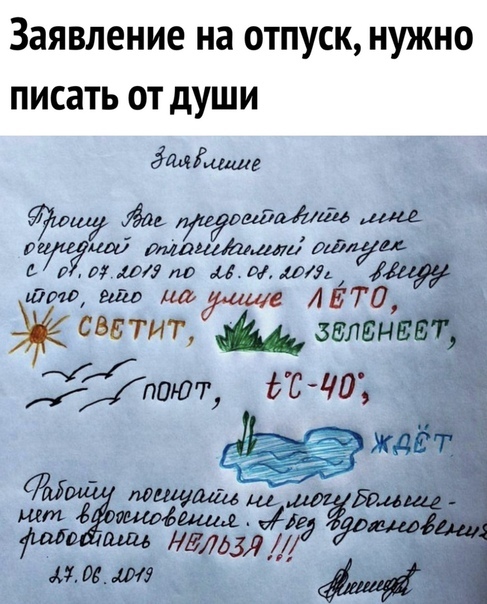 Заявление на отпуск, нужно
писать от души
Заявление
Прошу Вас предоставить мне
очередной оплачиваемый отпуск
с 01.07.2019 по 26.07.2019г. Ввиду
того, что на улице ЛЕТО,
СВЕТИТ, ЗЕЛЕНЕЕТ,
ПОЮТ, t°C-40°,
ЖДЁТ
Работу посещать не могу больше -
нет вдохновения. А без вдохновения
работать НЕЛЬЗЯ!!!
27.06.2019